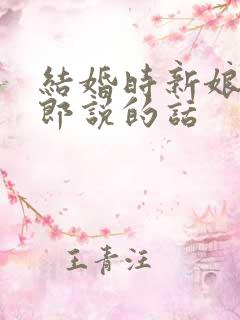 結婚時新娘
郎說的話
王青汪